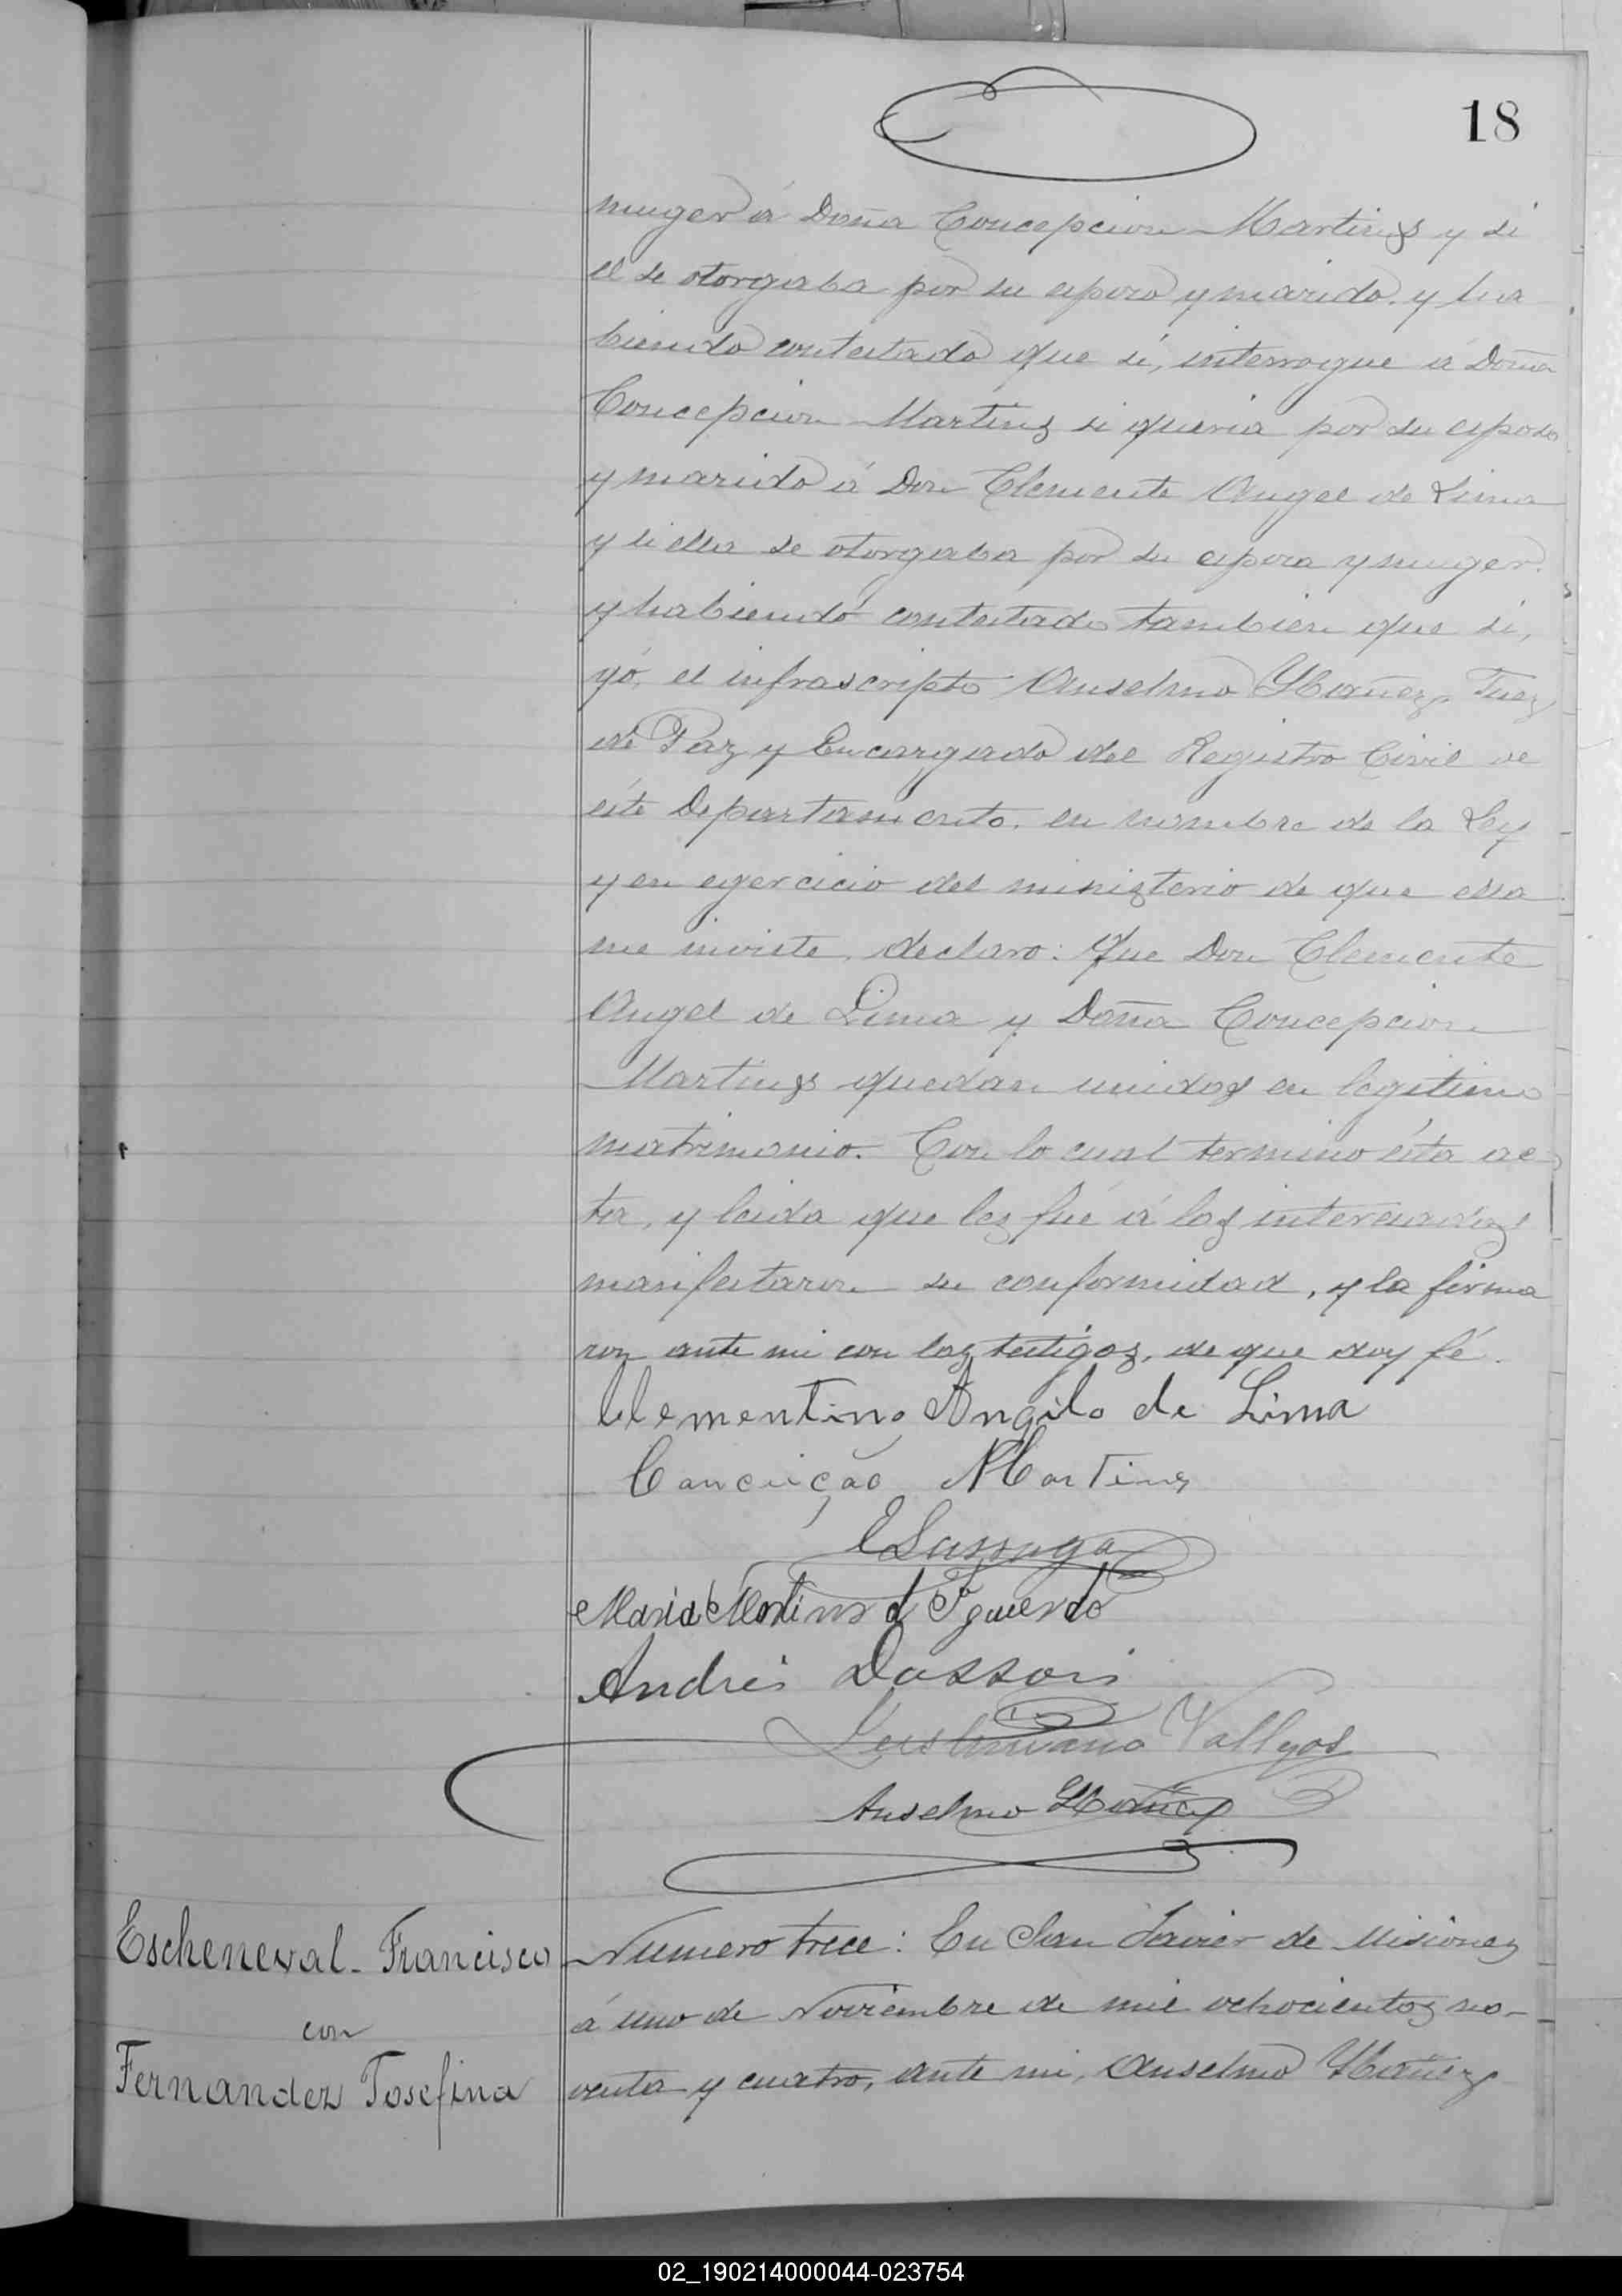 18
muger á Doña Concepcion Martins y si
el se otorgaba por su esposo y marido, y ha
biendo contestado que si, interrogue á Doña
Concepcion Martins si queria por su esposo
y marido á Don Clemente Angel de Lima
y si ella se otorgaba por su esposa y muger.
y habiendo contestado tambien que si,
yó, el infrascripto Anselmo Ybañez, Juez
de Paz y Encargado del Registro Civil de
éste Departamento, en nombre de la Ley
y en egercicio del ministerio de que ella
me inviste, declaro: Que Don Clemente
Angel de Lima y Doña Concepcion
Martins quedan unidos en legitimo
matrimonio. Con lo cual termino ésta ac
ta, y leida que les fué á los interesados
manifestaron su conformidad, y la firma
ron ante mi con los testigos, de que doy fé.
Clementino Angilo de Lima
Conceição Martins
Maria Martins d Figueredo
Andrés Dasson
Vallejos
Anselmo Ybañez
Escheneval - Francisco
con
Fernandez Josefina
Numero trece: En San Javier de Misiones
á uno de Noviembre de mil ochocientos no-
venta y cuatro, ante mi, Anselmo Ybañez
02_190214000044-023754